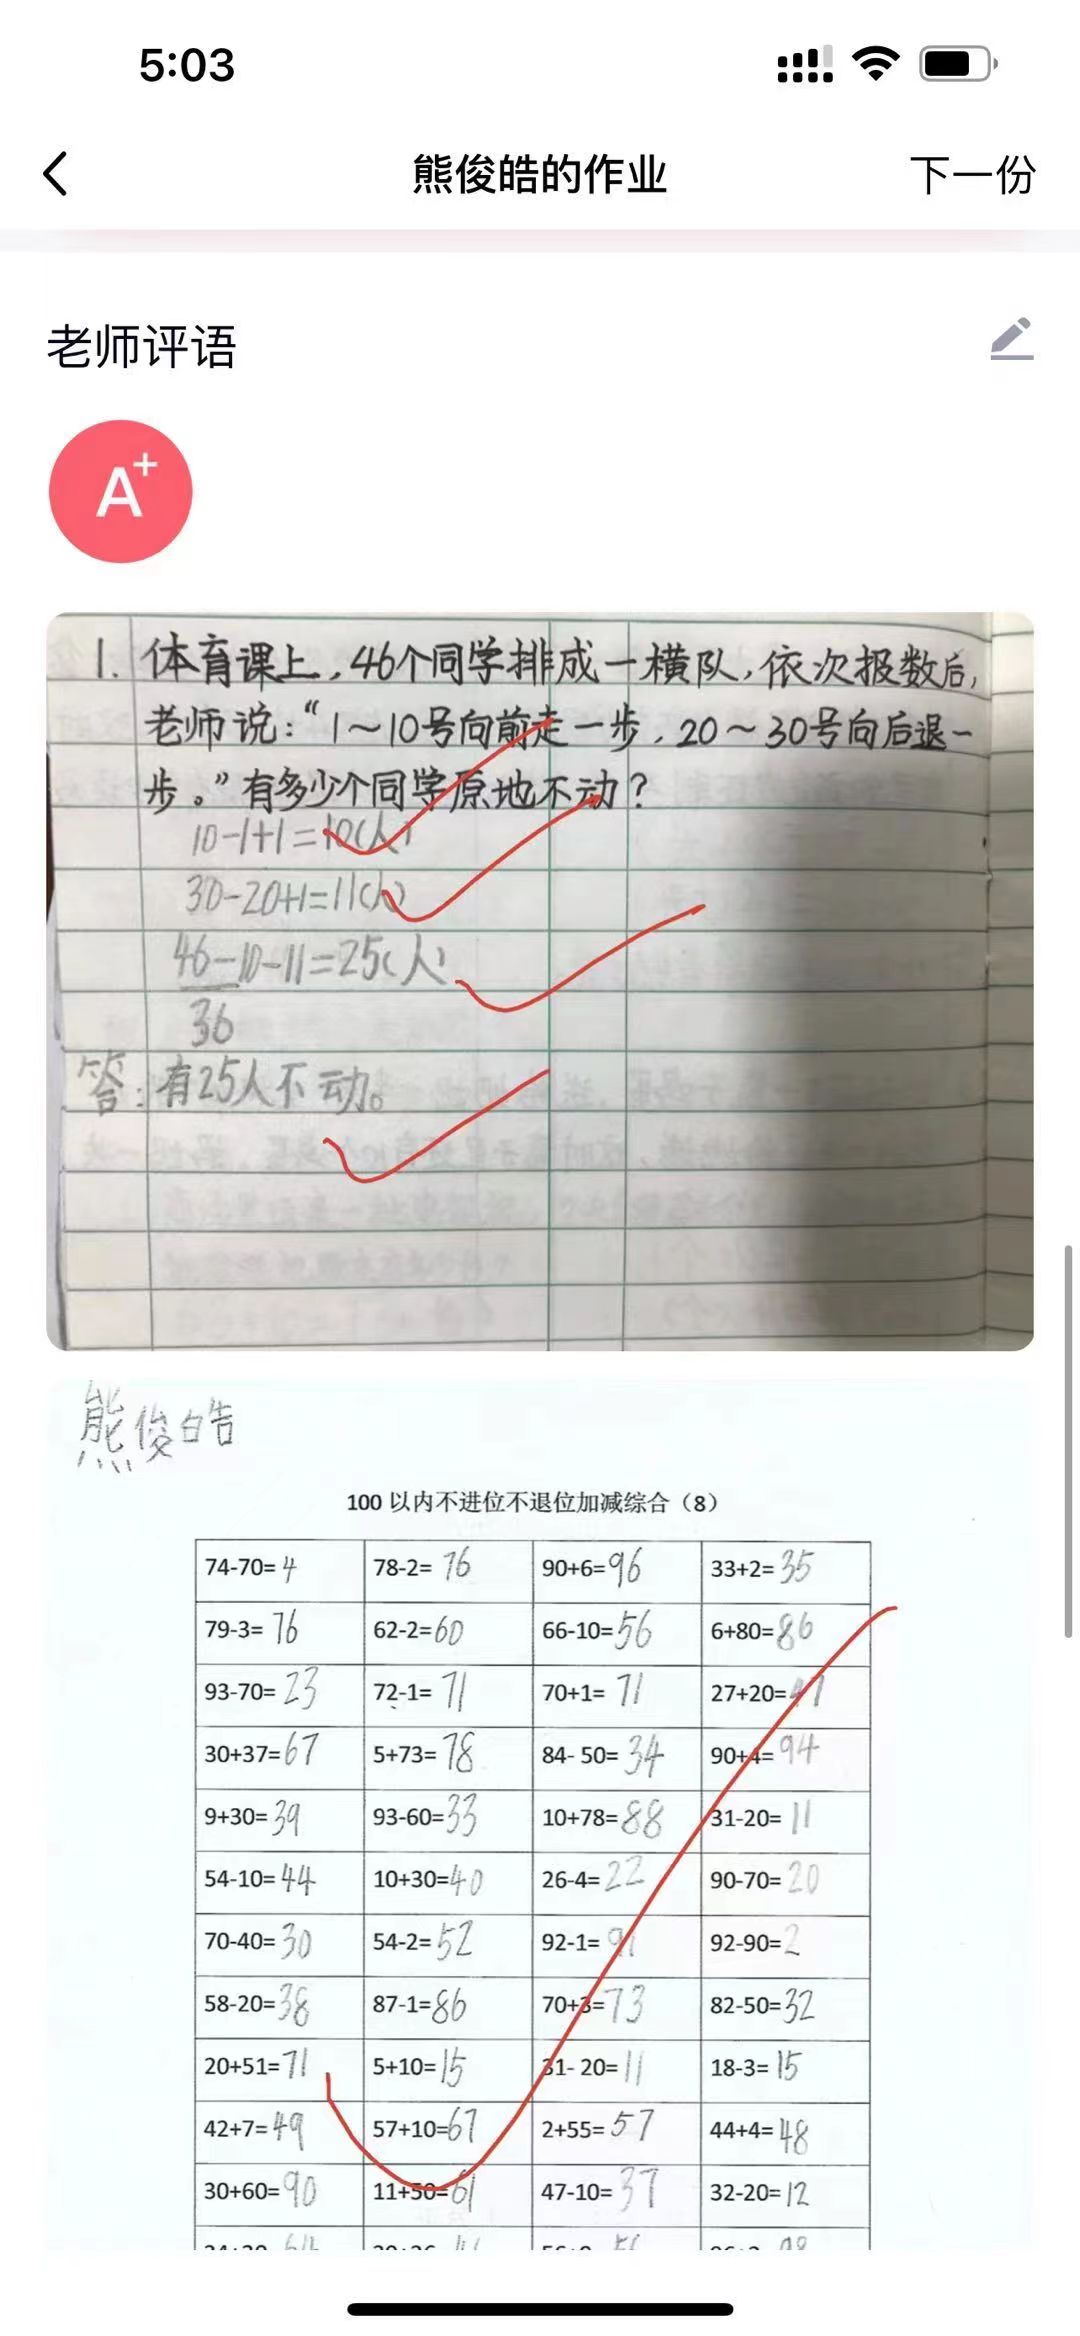 5:03
熊俊皓的作业
下一份
老师评语
A+
1. 体育课上,46个同学排成一横队,依次报数后,
老师说:“1～10号向前走一步,20～30号向后退一
步。”有多少个同学原地不动?
10-1+1=10(人)
30-20+1=11(人)
46-10-11=25(人)
36
答:有25人不动。
熊俊皓
100以内不进位不退位加减综合(8)
74-70=4 78-2=76 90+6=96 33+2=35
79-3=76 62-2=60 66-10=56 6+80=86
93-70=23 72-1=71 70+1=71 27+20=47
30+37=67 5+73=78 84-50=34 90+4=94
9+30=39 93-60=33 10+78=88 31-20=11
54-10=44 10+30=40 26-4=22 90-70=20
70-40=30 54-2=52 92-1=91 92-90=2
58-20=38 87-1=86 70+3=73 82-50=32
20+51=71 5+10=15 31-20=11 18-3=15
42+7=49 57+10=67 2+55=57 44+4=48
30+60=90 11+50=61 47-10=37 32-20=12